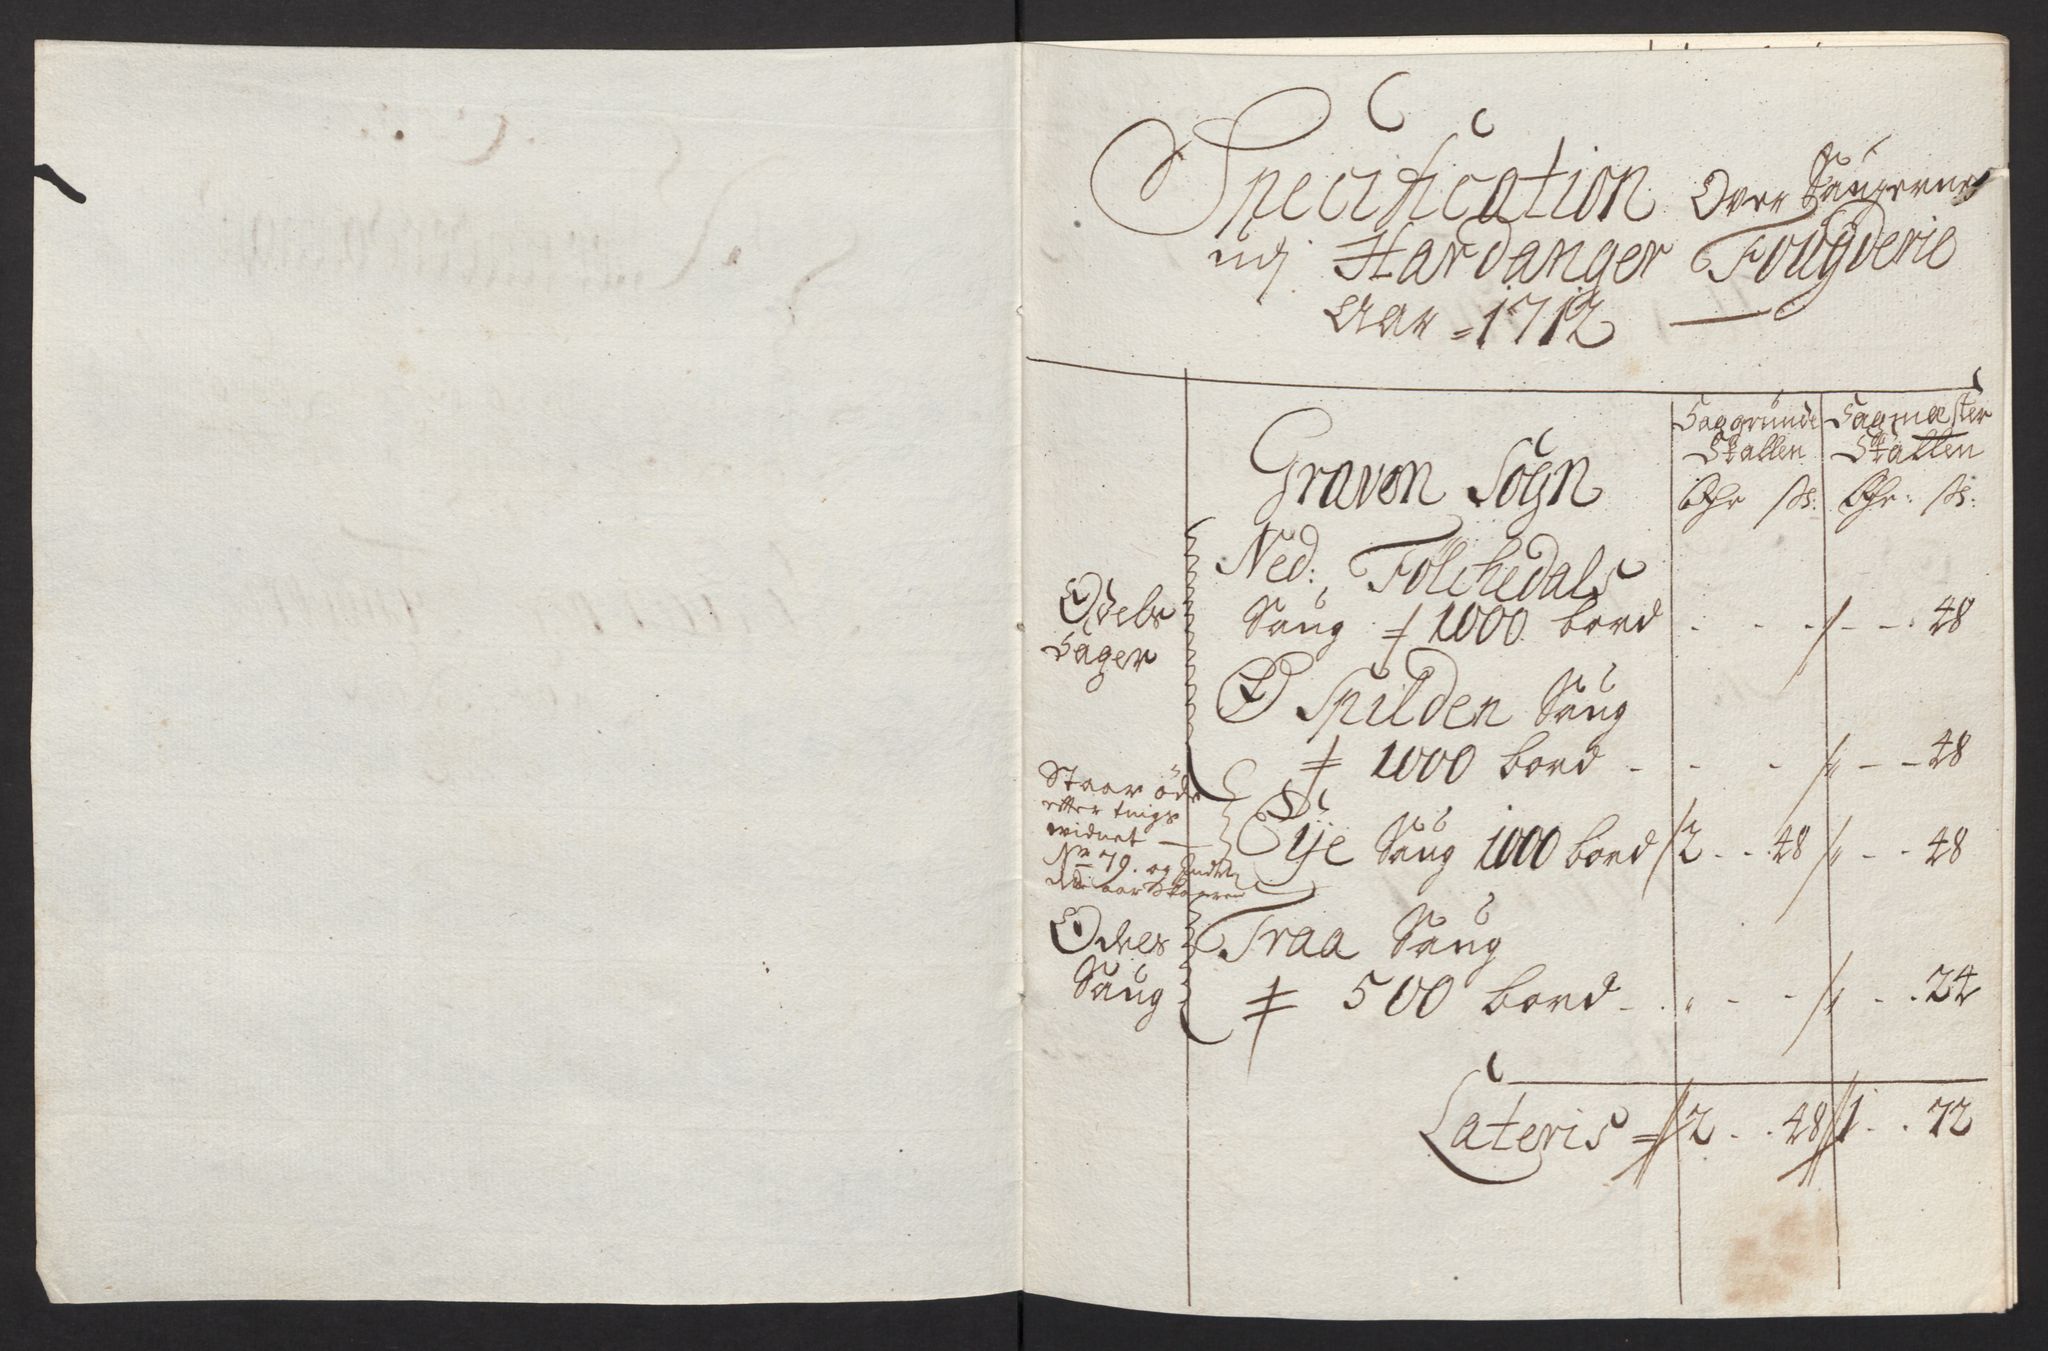 Specification Over Saugerne
udj Hardanger Fougderie
Aar = 1712
Sauggrunde Skatten
Saugmester Skatten
Dhr ß: Dhr: ß:
Graven Sogn
Odels Sager
Ned: Folchedals
Saug ≠ 1000 bord - - - - - 48
Spilden Saug
≠ 1000 bord - - - - - 48
Staar öde
efter tings
vidnet
No 79. og
Eje Saug 1000 bord 2 - - 48 - - 48
Odels Saug
Traa Saug
≠ 500 bord - - - - - 24
Lateris = 2 - - 48 1 - - 72